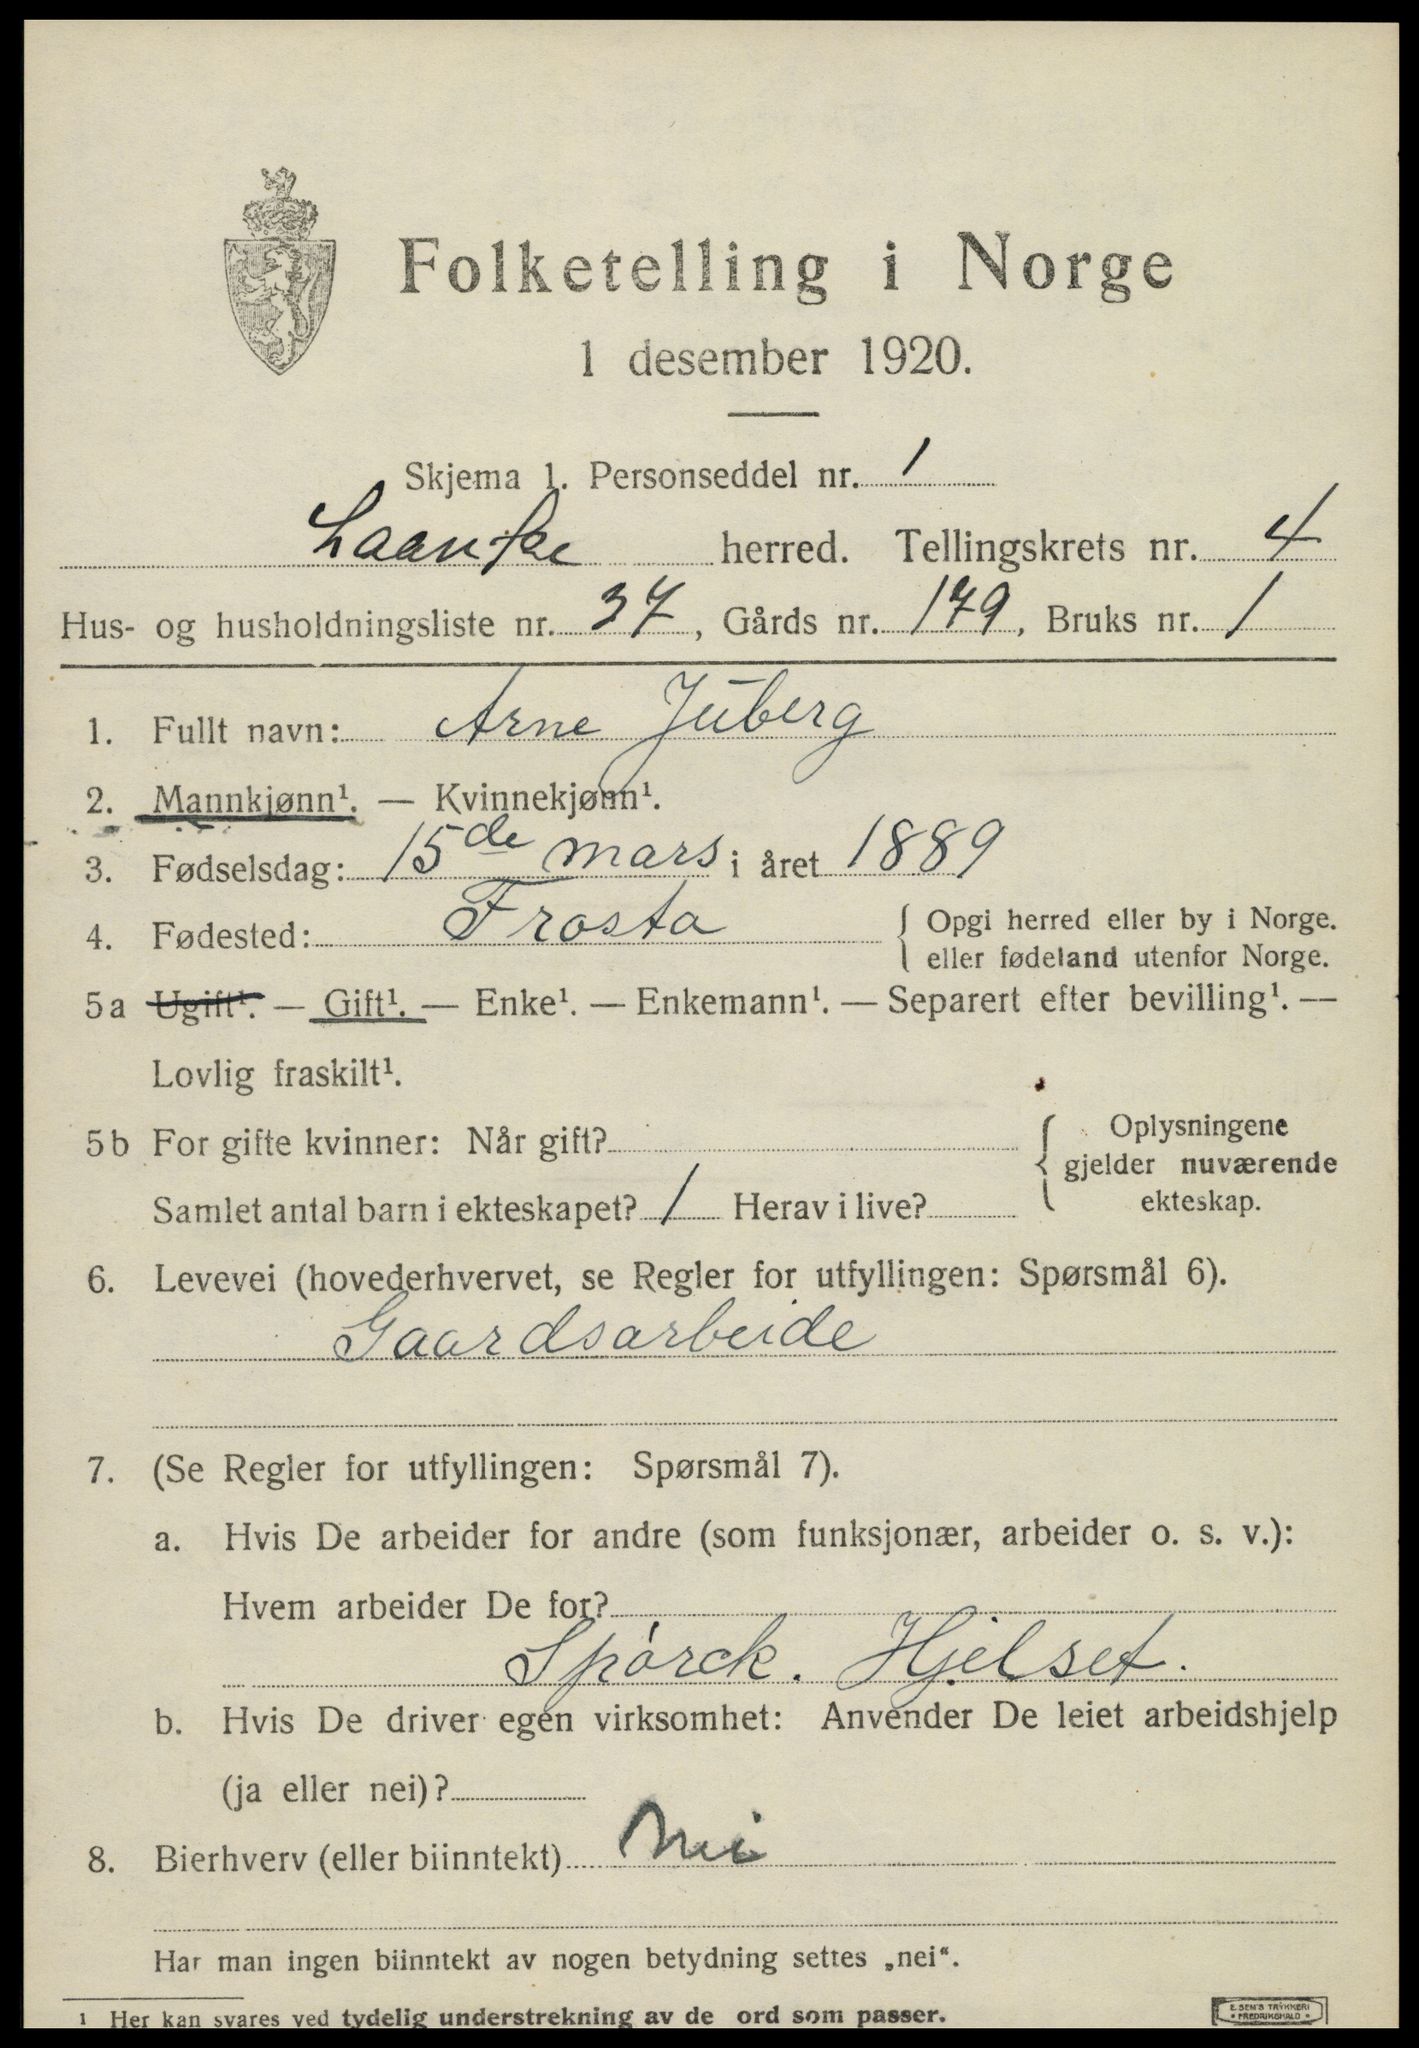 Folketelling i Norge
1 desember 1920.
Skjema 1. Personseddel nr. 1
Laanke herred. Tellingskrets nr. 4
Hus- og husholdningsliste nr. 37, Gårds nr. 179, Bruks nr. 1
1. Fullt navn: Arne Juberg
2. Mannkjønn¹. — Kvinnekjønn¹.
3. Fødselsdag: 15de mars i året 1889
4. Fødested: Frosta { Opgi herred eller by i Norge.
eller fødeland utenfor Norge.
5a Ugift¹. — Gift¹. — Enke¹. — Enkemann¹. — Separert efter bevilling¹. —
Lovlig fraskilt¹.
5b For gifte kvinner: Når gift? { Oplysningene
gjelder nuværende
Samlet antal barn i ekteskapet? 1 Herav i live? ekteskap.
6. Levevei (hovederhvervet, se Regler for utfyllingen: Spørsmål 6).
Gaardsarbeide
7. (Se Regler for utfyllingen: Spørsmål 7).
a. Hvis De arbeider for andre (som funksjonær, arbeider o. s. v.):
Hvem arbeider De for?
Spørck. Hjelset.
b. Hvis De driver egen virksomhet: Anvender De leiet arbeidshjelp
(ja eller nei)?
8. Bierhverv (eller biinntekt) Nei
Har man ingen biinntekt av nogen betydning settes „nei“.
¹ Her kan svares ved tydelig understrekning av de ord som passer.
E. SEM'S TRYKKERI
• FREDRIKSHALD •